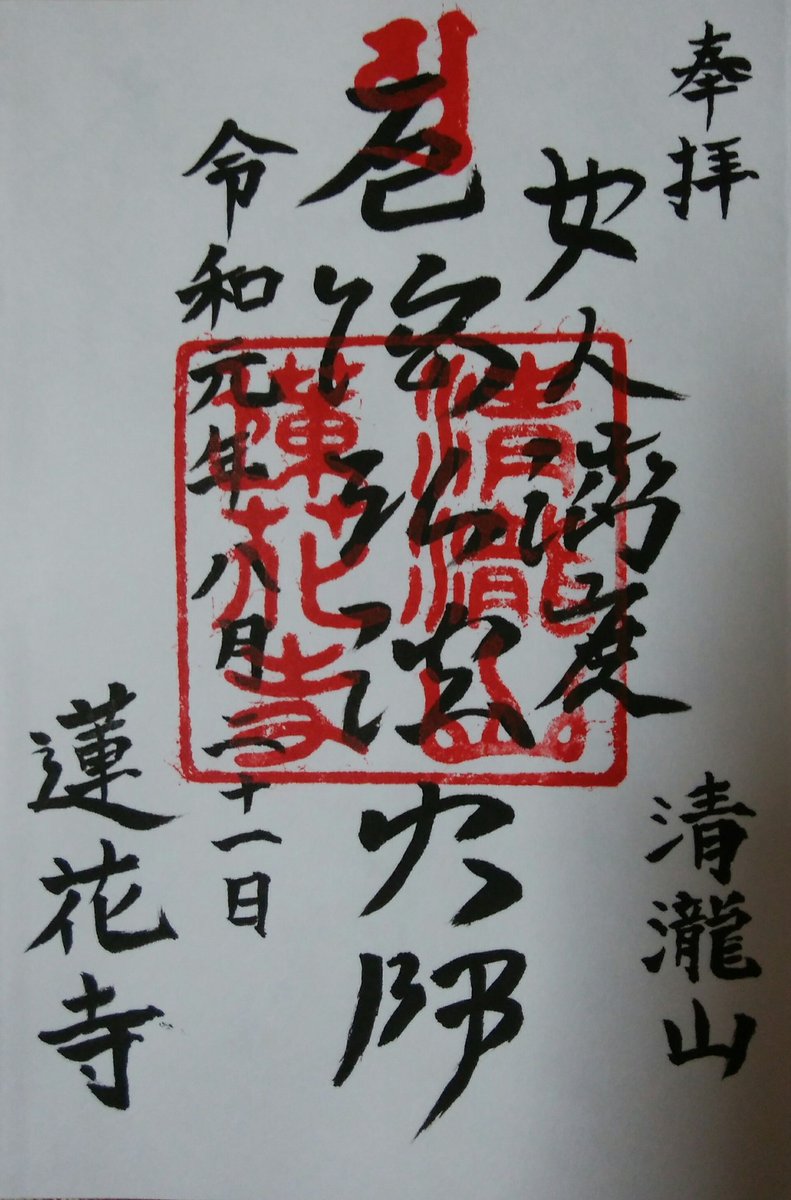 奉拝
清瀧山
女人濟度
厄除弘法大師
令和元年八月二十一日
蓮花寺
清瀧山
蓮花寺